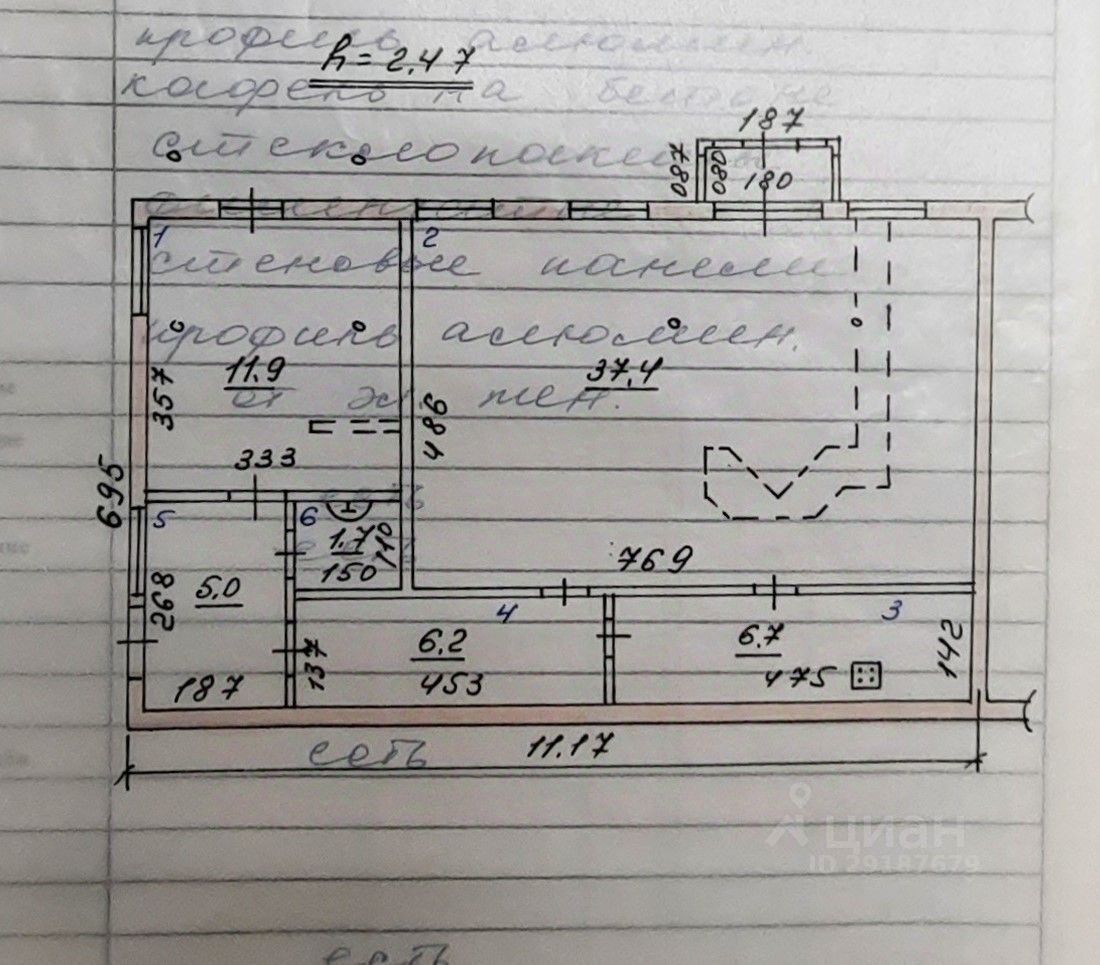 профиль алюмин
h = 2.47
кафель на бетоне
187
стеклопакеты
087 080 180
1 2
стеновые панели
профиль алюмин.
11.9 37,4
357 486
333
695
5 6
1.7 110
150 769
268 5.0
4 3
6.2 6.7
137 453 475 142
187
есть 11.17
циан
ID 29187679
есть